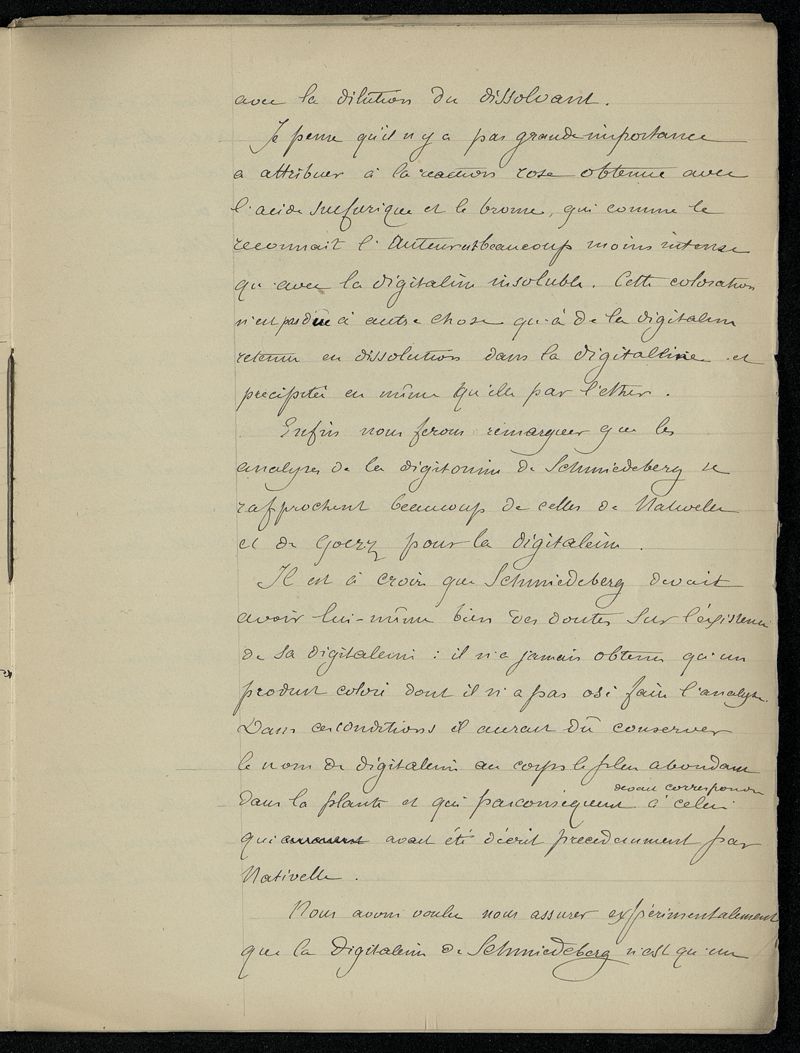 avec la dilution du dissolvant.
Je pense qu'il n'y a pas grande importance
a attribuer à la reaction rose obtenue avec
l'acide sulfurique et le brome, qui comme le
reconnait l'Auteur est beaucoup moins intense
qu'avec la digitaline insoluble. Cette coloration
n'est pas dûe à autre chose qu'à de la digitaline
retenue en dissolution dans la digitaleine et
precipitée en même qu'elle par l'ether.
Enfin nous ferons remarquer que les
analyses de la digitonine de Schmiedeberg se
rapprochent beaucoup de celles de Nativelle
et de Goerz pour la digitaleine.
Il est à croire que Schmiedeberg devait
avoir lui-même bien des doutes sur l'existence
de sa digitaleine : il n'a jamais obtenu qu'un
produit coloré dont il n'a pas osé faire l'analyse.
Dans ces conditions il aurait dû conserver
le nom de digitaleine au corps le plus abondant
devait correspondre
dans la plante et qui parconséquent à celui
qui avait été décrit precedamment par
Nativelle.
Nous avons voulu nous assurer expérimentalement
que la Digitaleine de Schmiedeberg n'est qu'un